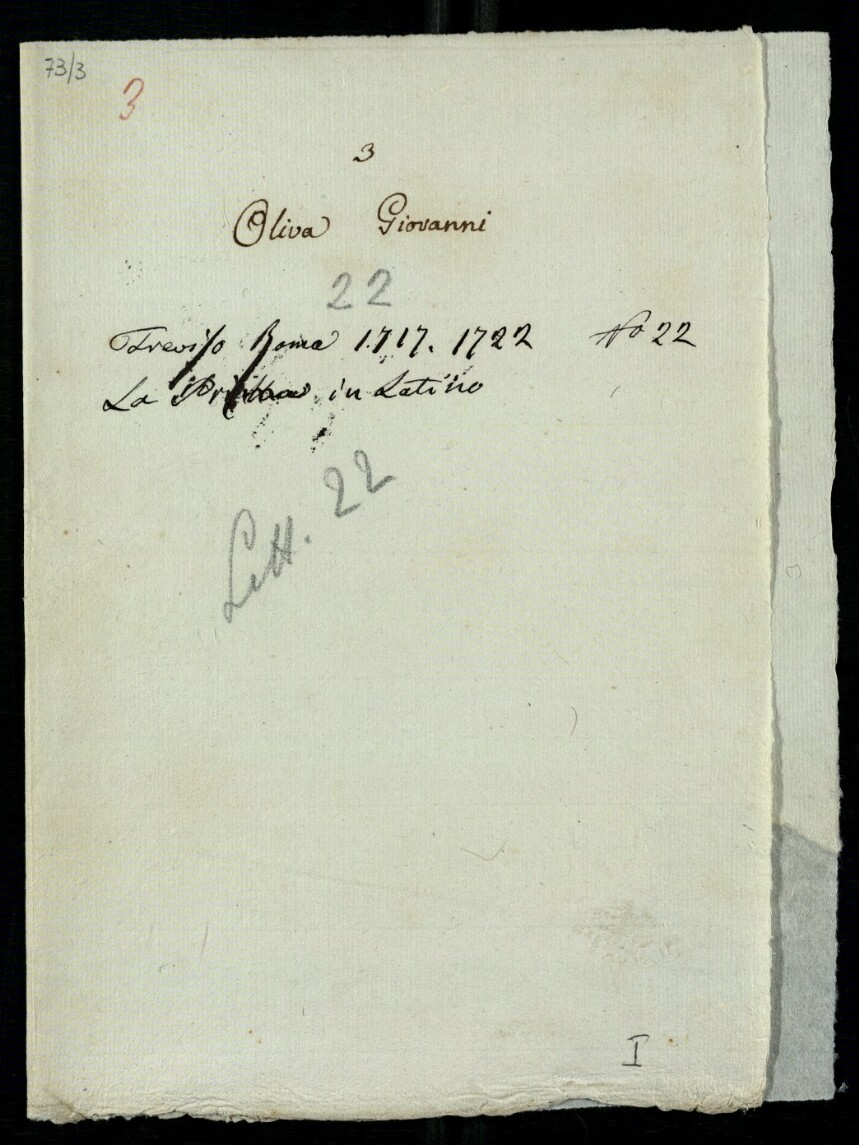 73/3
3
3
Oliva Giovanni
22
Treviso Roma 1717. 1722 No 22
La Prima in Latino
Lett. 22
I